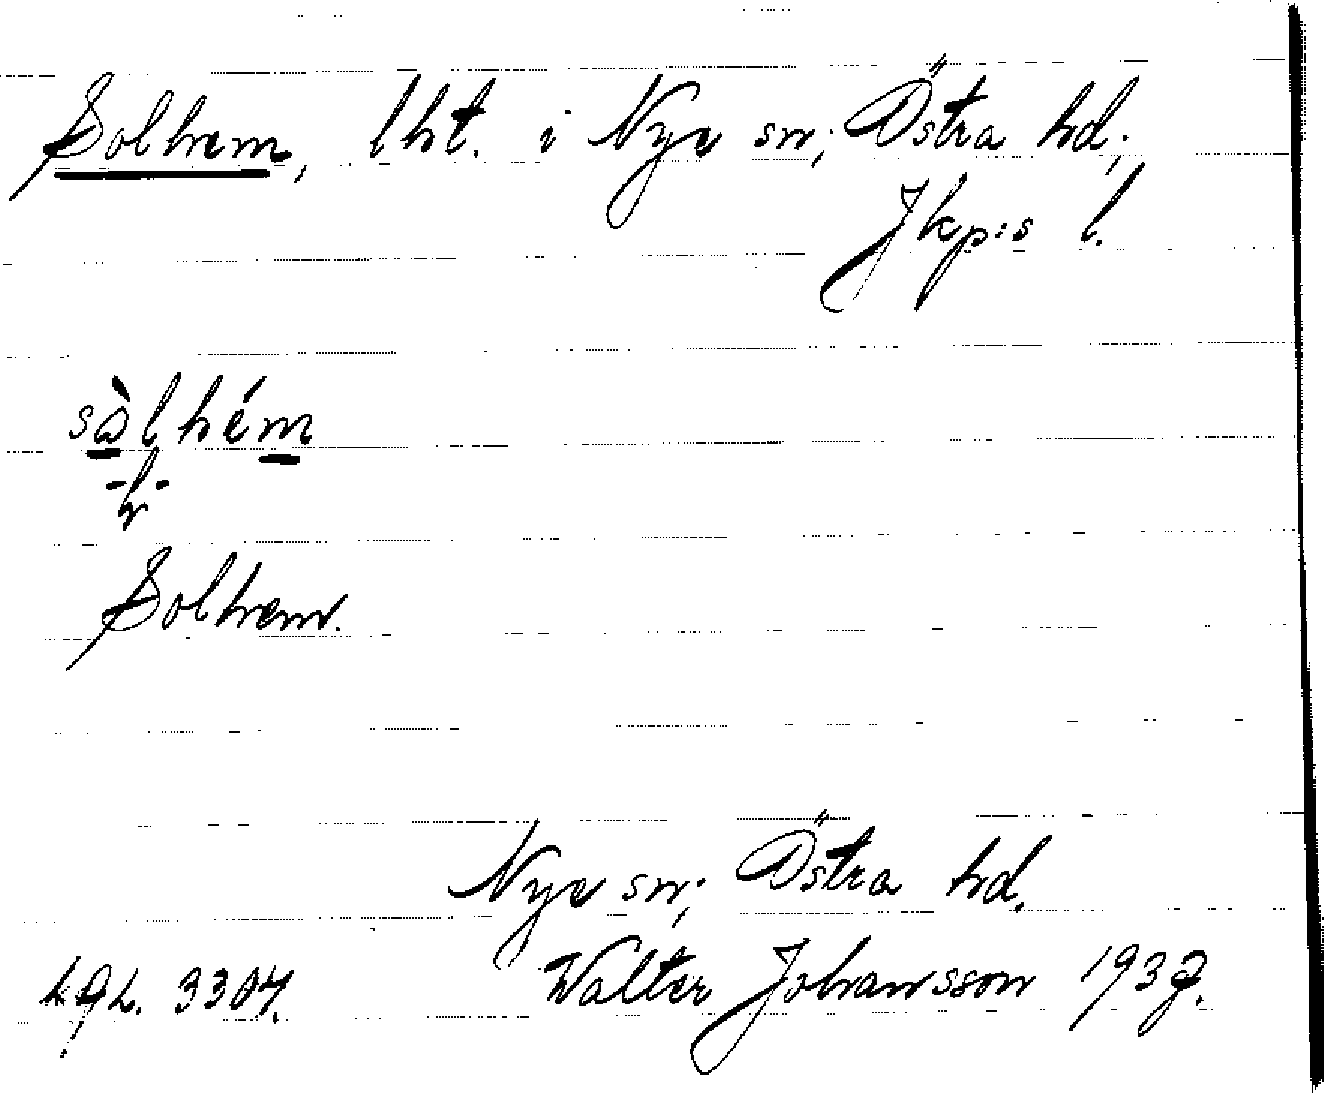 Solhem, lht. i Nye sn; Östra hd;
Jkp:s l.
sòlhém
-h-
Solhem.
Nye sn; Östra hd.
Walter Johansson 1932.